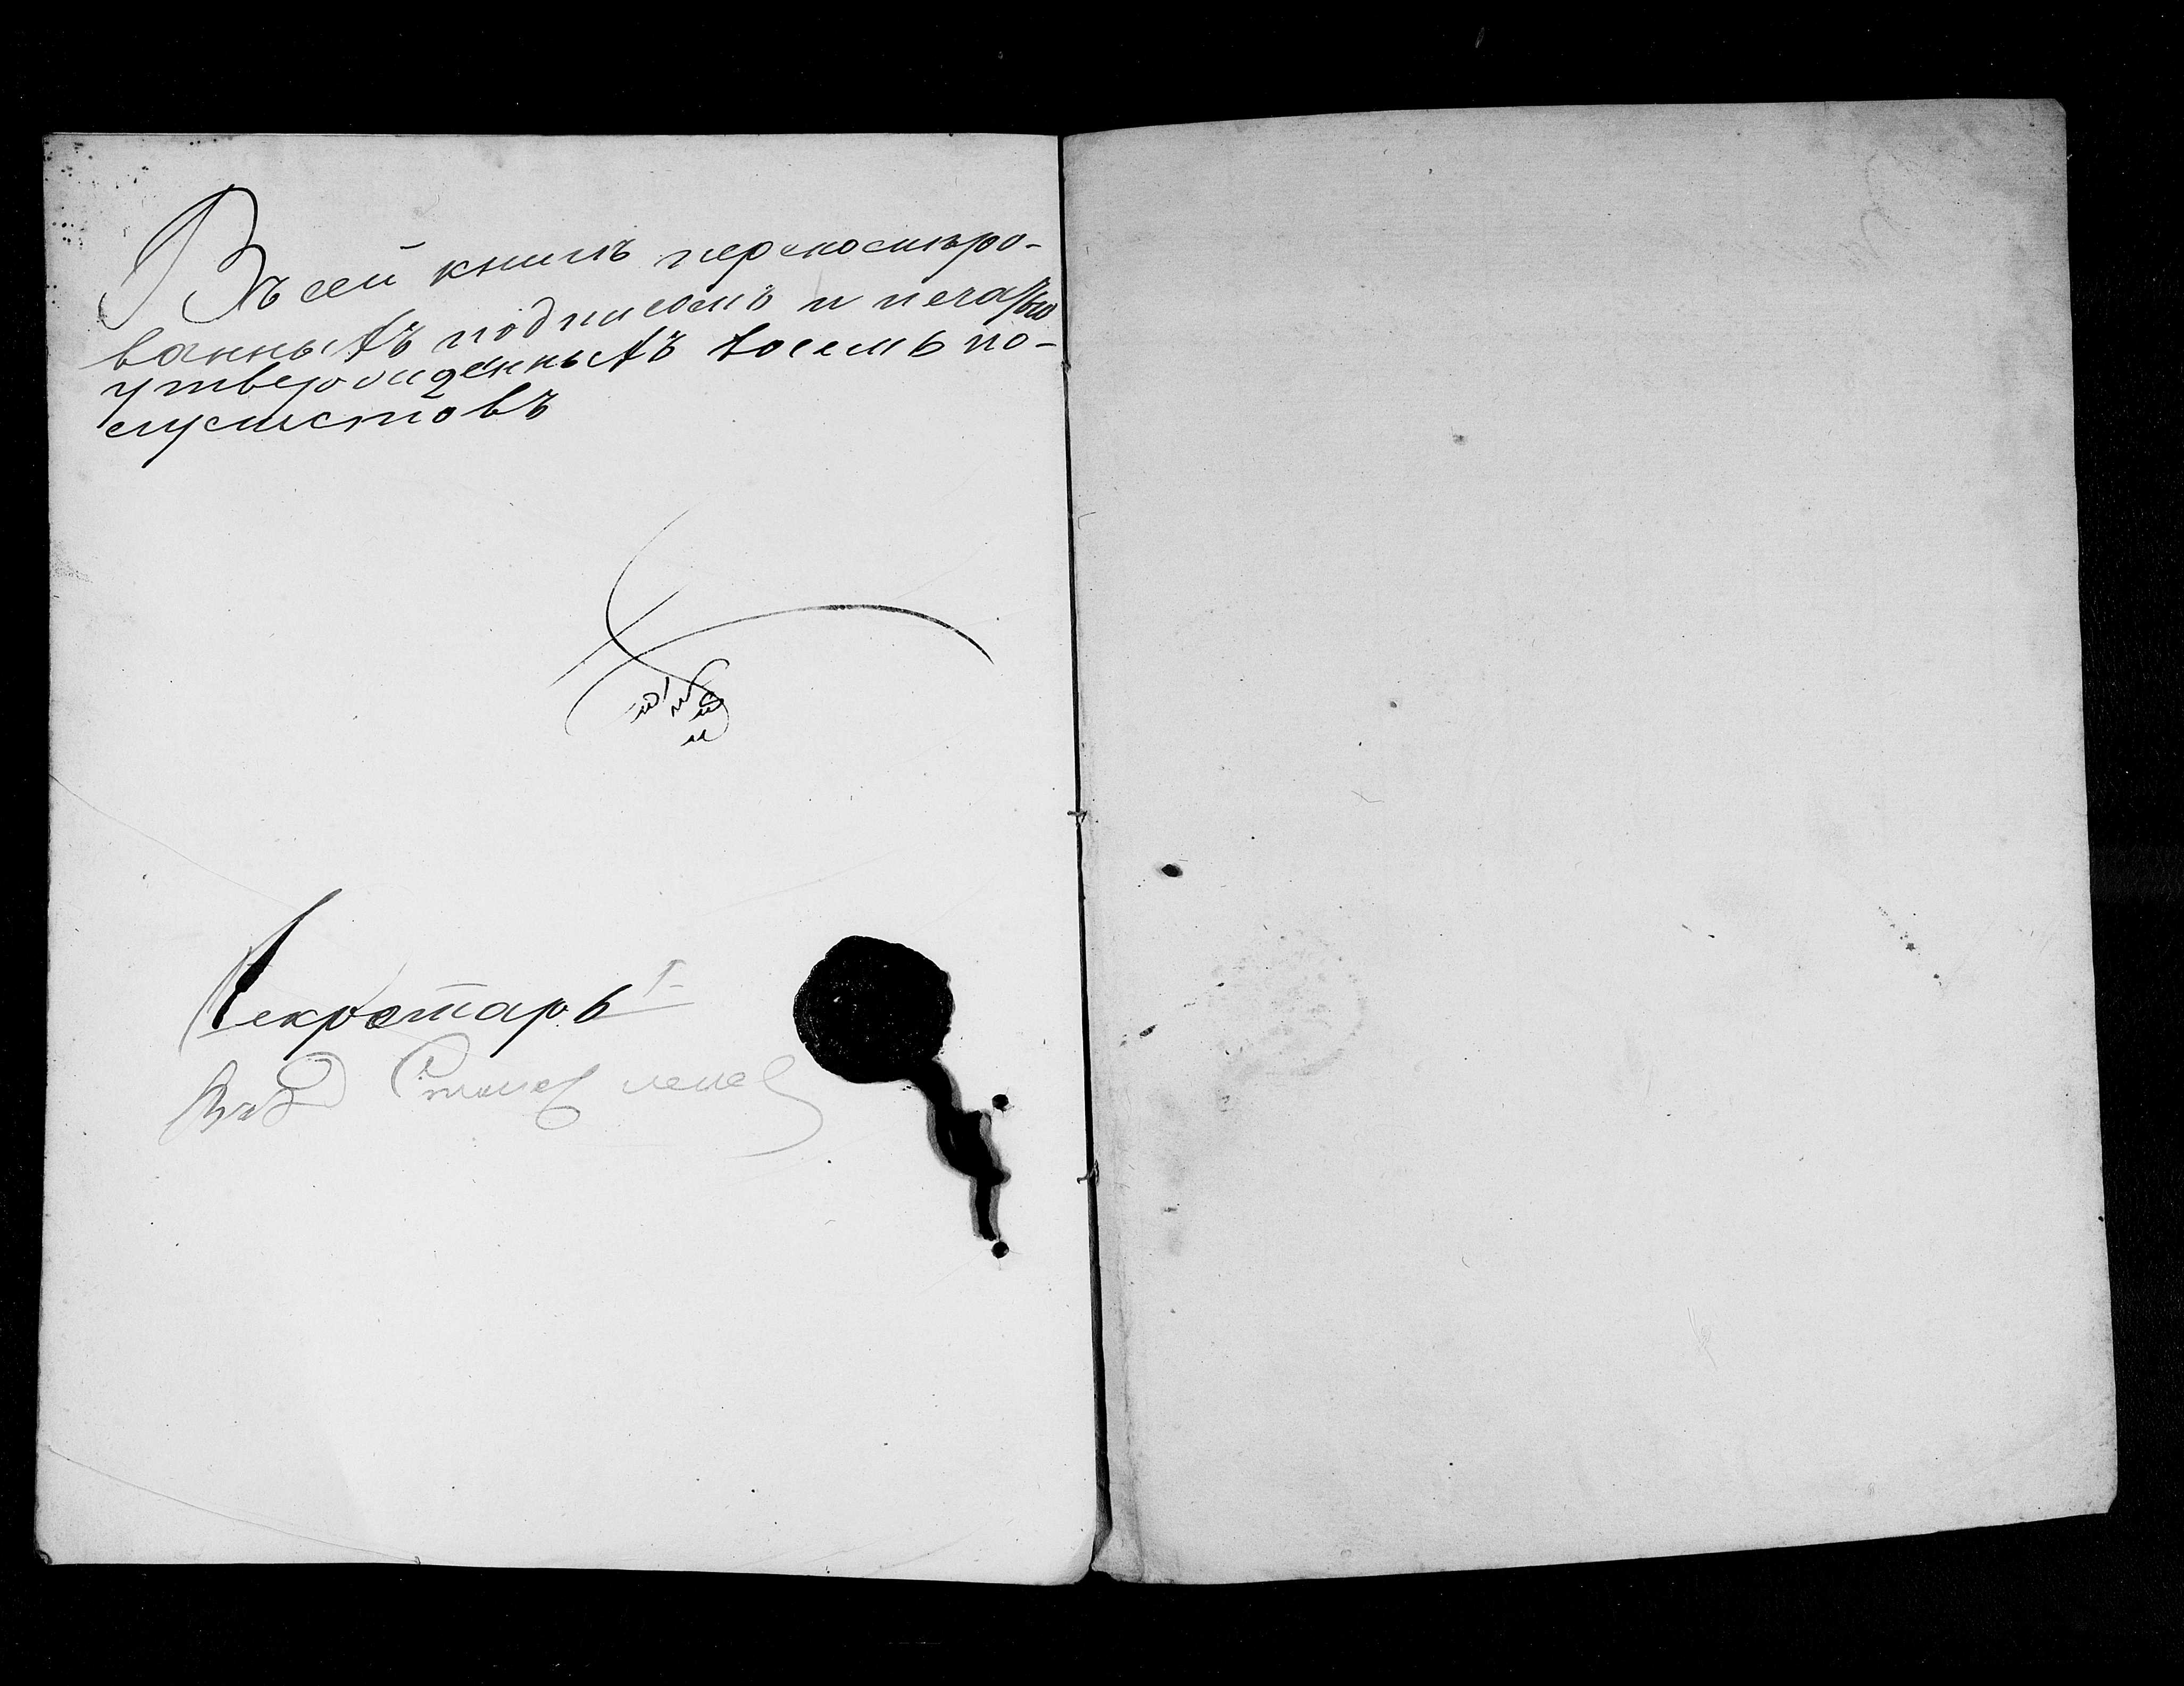 Въ сей книгѣ перенумеро-
ванныхъ подписомъ и печатью
утвержденныхъ восемь по-
лулистовъ
Секретарь